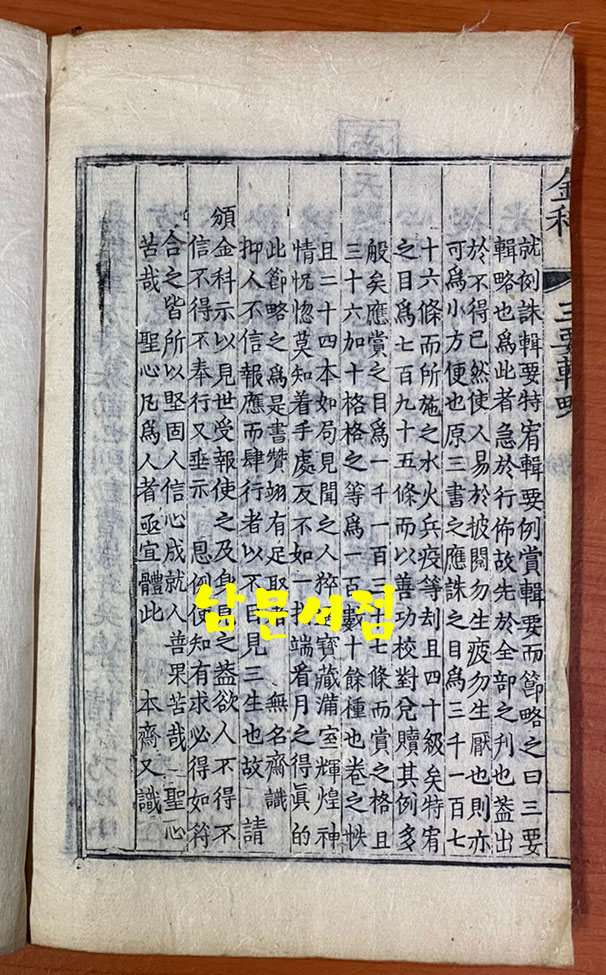 金科
三要輯略
一
就例誅輯要特宥輯要例賞輯要而節略之曰三要
輯略也爲此者急於行佈故先於全部之刋也盖出
於不得已然使人易於披閱勿生疲勿生厭也則亦
可爲小方便也原三書之應誅之目爲三千一百七
十六條而所施之水火兵疫等刦且四十級矣特宥
之目爲七百九十五條而以善功校對兌贖其例多
般矣應賞之目爲一千一百三十七條而賞之格且
三十六加十格格之等爲一百數十餘種也卷之帙
且二十四本如局見聞之人猝 寶藏滿室輝煌神
情怳惚莫知着手處反不如一 端看月之得眞的
此節略之爲是書贊翊有足取 無名齋識
抑人不信報應而肆行者以不自見三生也故 請
頒金科示以見世受報使之及身 之盖欲人不得不
信不得不奉行又垂示 恩例使知有求必得如符
合之皆所以堅固人信心成就人善果苦哉 聖心
苦哉 聖心凡爲人者亟宜體此 本齋又識
남문서점